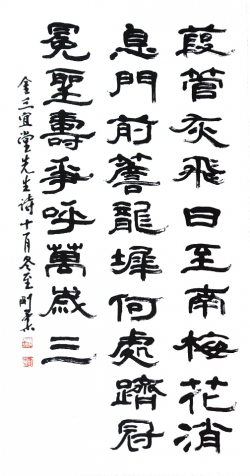 葭管灰飛日至南梅花消
息門前簷龍墀何處躋冠
冕聖壽爭呼萬歲三
金三宜堂先生詩十月冬至剛菴